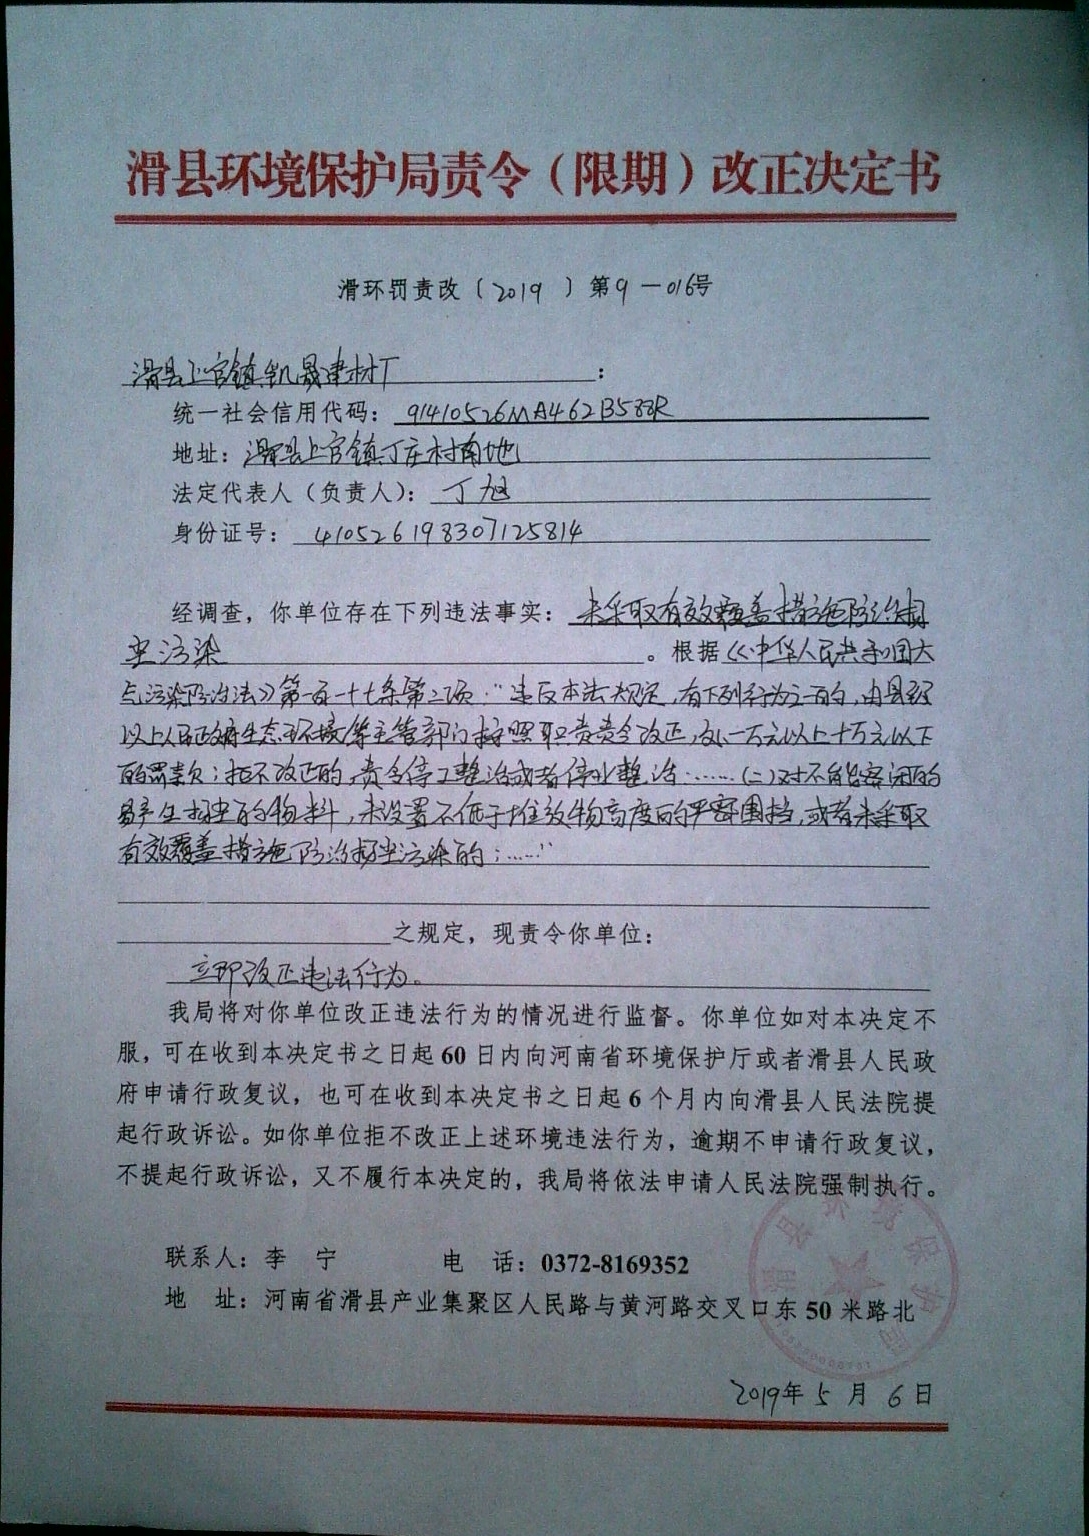 滑县环境保护局责令（限期）改正决定书
滑环罚责改〔2019〕第9—016号
滑县上官镇凯晟建材厂：
统一社会信用代码：91410526MA462B588R
地址：滑县上官镇丁庄村南地
法定代表人（负责人）：丁旭
身份证号：410526198307125814
经调查，你单位存在下列违法事实：未采取有效覆盖措施防治扬
尘污染。根据《中华人民共和国大
气污染防治法》第一百一十七条第二项：“违反本法规定，有下列行为之一的，由县级
以上人民政府生态环境等主管部门按照职责责令改正，处一万元以上十万元以下
的罚款；拒不改正的，责令停工整治或者停业整治：……（二）对不能密闭的
易产生扬尘的物料，未设置不低于堆放物高度的严密围挡，或者未采取
有效覆盖措施防治扬尘污染的；……”
之规定，现责令你单位：
立即改正违法行为。
我局将对你单位改正违法行为的情况进行监督。你单位如对本决定不
服，可在收到本决定书之日起60日内向河南省环境保护厅或者滑县人民政
府申请行政复议，也可在收到本决定书之日起6个月内向滑县人民法院提
起行政诉讼。如你单位拒不改正上述环境违法行为，逾期不申请行政复议，
不提起行政诉讼，又不履行本决定的，我局将依法申请人民法院强制执行。
滑县环境保护局
联系人：李 宁 电 话：0372-8169352
地 址：河南省滑县产业集聚区人民路与黄河路交叉口东50米路北
2019年5月6日